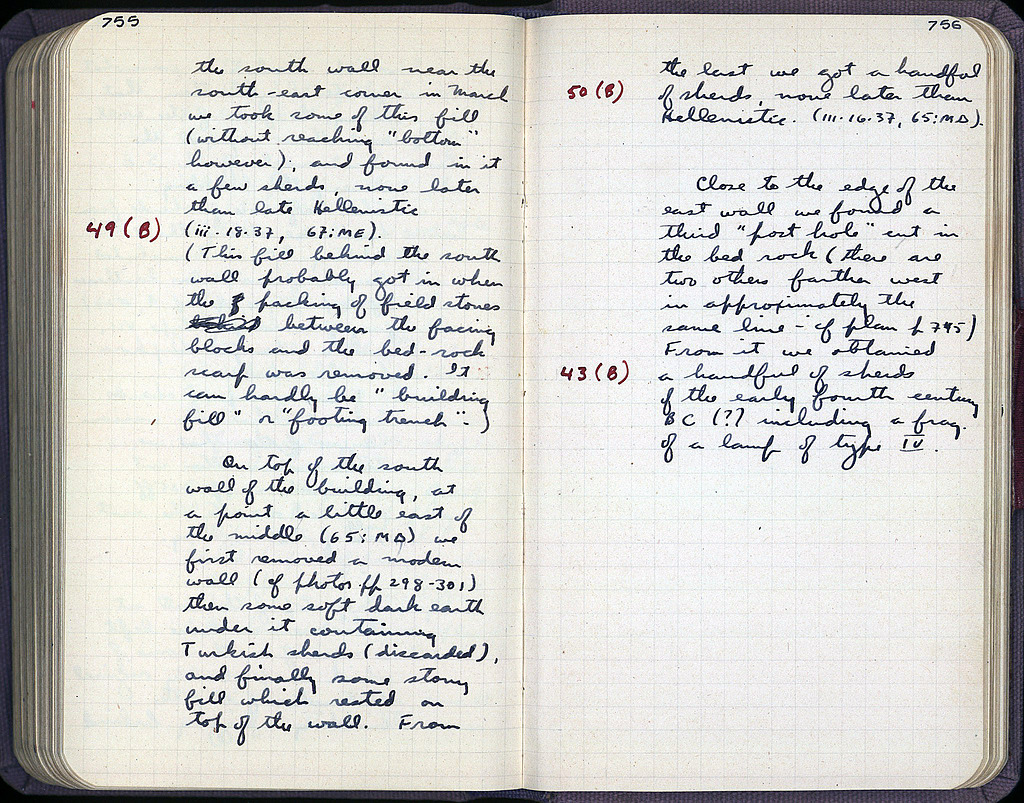 755
the south wall near the
south-east corner in March
we took some of this fill
(without reaching "bottom"
however), and found in it
a few sherds, none later
than late Hellenistic
49 (B) (iii.18.37, 67:ME).
(This fill behind the south
wall probably got in when
the packing of field stones
between the facing
blocks and the bed-rock
scarp was removed. It
can hardly be "building
fill" or "footing trench".)
On top of the south
wall of the building, at
a point a little east of
the middle (65:MΔ) we
first removed a modern
wall (cf photos pp 298-301)
then some soft dark earth
under it containing
Turkish sherds (discarded),
and finally some stony
fill which rested on
top of the wall. From
756
the last we got a handful
50 (B) of sherds, none later than
Hellenistic. (iii.16.37, 65:MΔ).
Close to the edge of the
east wall we found a
third "post hole" cut in
the bed rock (there are
two others farther west
in approximately the
same line - cf plan p 745)
From it we obtained
43 (B) a handful of sherds
of the early fourth century
BC (?) including a frag.
of a lamp of type IV.